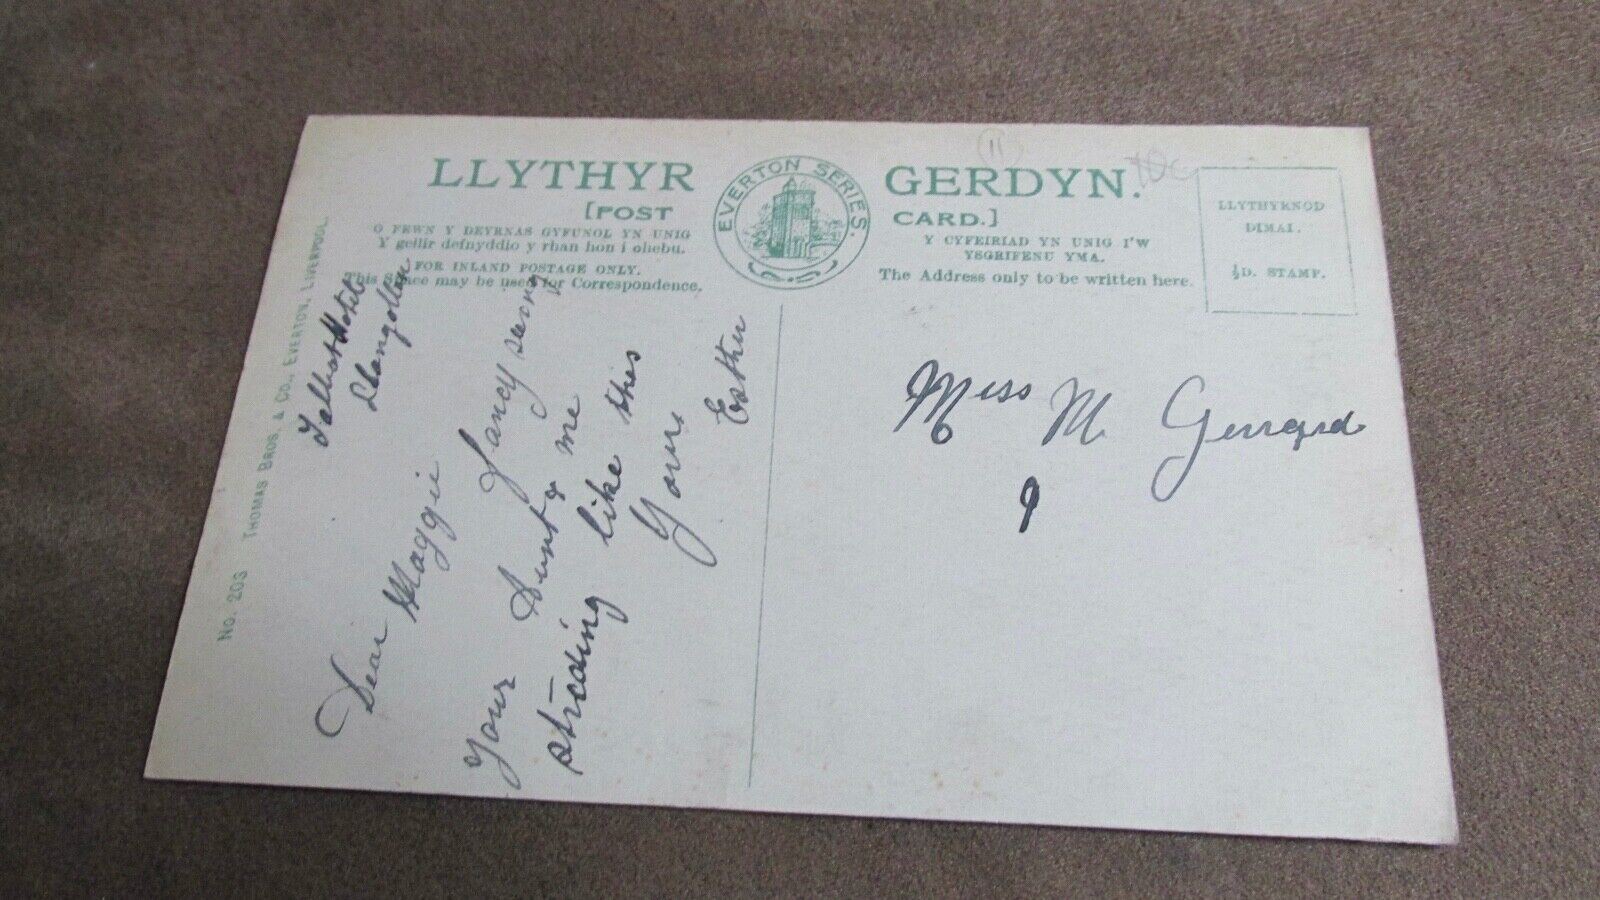 LLYTHYR GERDYN.
[POST CARD.]
EVERTON SERIES.
O FEWN Y DEYRNAS GYFUNOL YN UNIG
Y gellir defnyddio y rhan hon i ohebu.
FOR INLAND POSTAGE ONLY.
This Space may be used for Correspondence.
Y CYFEIRIAD YN UNIG I'W
YSGRIFENU YMA.
The Address only to be written here.
LLYTHYRNOD
DIMAI.
½D. STAMP.
11
No. 203 THOMAS BROS. & CO., EVERTON, LIVERPOOL.
Hotel
Llangollen
Dear Maggie
Fancy seeing
Your Aunt & me
striding like this
Yours
Esther
Miss M